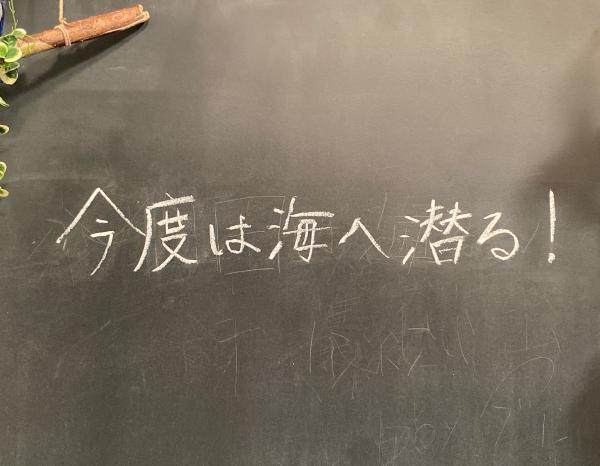 今度は海へ潜る!